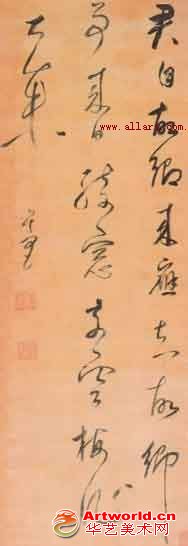 君自故鄉來應知故鄉
事來日綺窓前寒梅著
花未
www.allart
Artworld.cn
华艺美术网